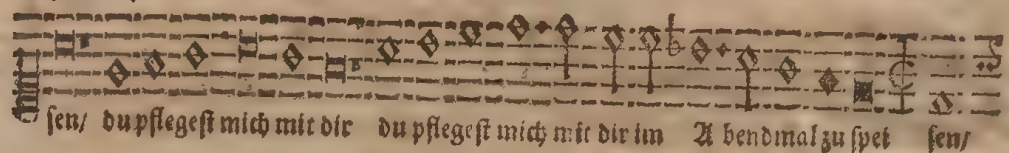 sen/ du pflegest mich mit dir du pflegest mich mit dir im A bendmal zu spei sen/